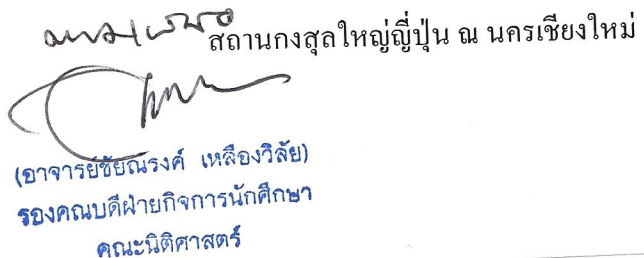 ตามเสนอ
สถานกงสุลใหญ่ญี่ปุ่น ณ นครเชียงใหม่
(อาจารย์ชัยณรงค์ เหลืองวิลัย)
รองคณบดีฝ่ายกิจการนักศึกษา
คณะนิติศาสตร์